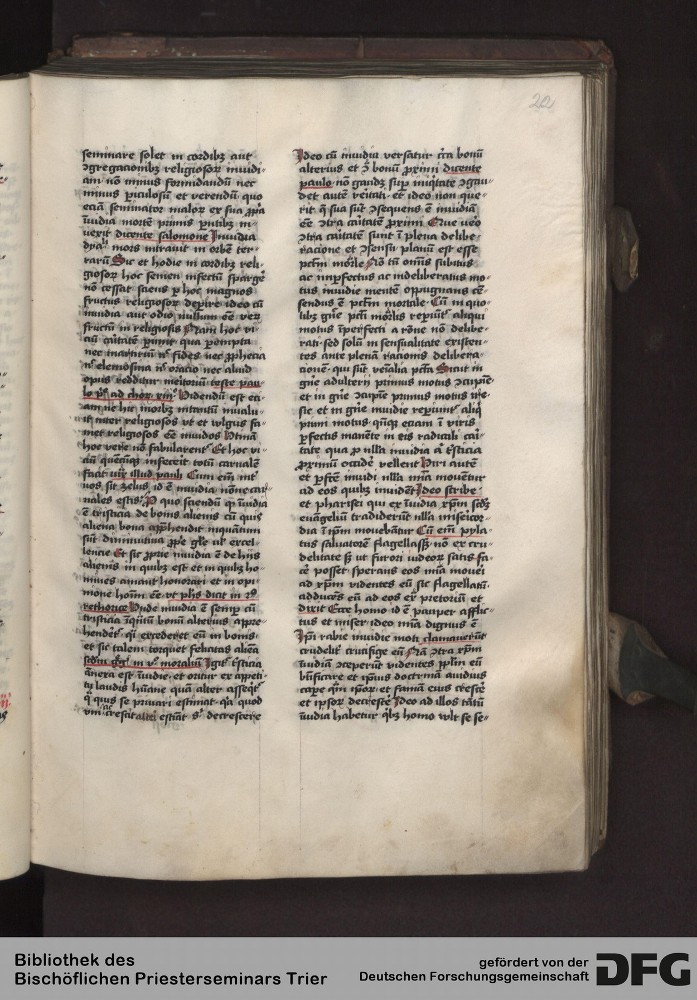 22
seminare solet in cordibꝫ aut
ꝯgregacionibꝫ religiosoꝝ inuidi-
am nō minus formidandū nec
minus ꝑiculosū et verendū quo
eciā seminator maloꝝ ex sua ꝓp̄a
īuidia mortē primis
uexit dicente salomone Inuidia
dyaᵇⁱ mors intrauit in orbē ter-
rarū Sic et hodie in cordibꝫ reli-
giosoꝝ hoc semen infectū spargē
nō cessat sciens ꝑ hoc magnos
fructus religiosoꝝ deꝑire ideo cū
inuidia aut odio nullum eē veꝝ
fructū in religiosis Nam hoc vi-
ciū caritatē ꝑimit qua ꝑempta
nec martiriū nᵉ fides nec ꝓphecia
nᵉ elemosina nᵉ oracio nec aliud
opus redditur meritoriū teste pau-
lo pᵃ ad choꝝ xiiiᵒ Videndū est eci-
am ne hic morbꝫ intrantū inualu-
it inter religiosos vt et wlgus fa-
met religiosos eē inuidos Vtinā
hoc vere nō fabularent Et hoc vi-
ciū quēcūqꝫ infecerit totū carnalē
facit iux illud pauli Cum em̄ int̄
vos sit zelus id ē inuidia nōne car-
nales estis P quo sciendū ꝙ īuidia
ē tristicia de bonis alienis cū quis
aliena bona apprehendit inquātum
sūt diminutiua ꝓpē gl̄e ul̓ excel-
lencie Et sic ꝓprie inuidia ē de hiis
alienis in quibꝫ est et in quibꝫ ho-
mines amant honorari et in opi-
nione hom̄ eē vt ph̄s dicit in 2ᵒ
rethorice Vnde inuidia ē semp cū
tristicia inq̄tū bonū alterius appre-
henderᵗ qͥ excederet eū in bonis
et sic talem torquet felicitas aliēa
scd̄m gᵉgᵉ in vᵒ moraliū Igit t̓sticia
ānexa est īuidie et oritur ex appeti-
tu laudis hūane quā alter asseqᵗ
qᵃ quis se priuari estimat qͥa quod
uni accrescit alteri estiāt sͥ decrescere
Ideo cū inuidia versatur cͥca bonū
alterius et ꝯ bonū ꝓximi dicente
paulo nō gaudꝫ suꝑ iniqͥtate ꝯgau-
det autē veritati et ideo non que-
rit q̄ sua sūt ꝯsequens ē inuidiā
eē ꝯtra caritatē ꝓximi Que uᵒ
ꝯtra caritatē sunt ī plena delibe-
racione et ꝯsensu planū est esse
pctm̄ morᵃle Nō tn̄ omīs subitus
ac imꝑfectus ac indeliberatus mo-
tus inuidie mentē oppugnans cē-
sendus ē pctm̄ mortale Cū in quo-
libꝫ gn̄e pctī morᵃlis repiūᵗ aliqui
motus īperfecti a rōne nō delibe-
rati sed solū in sensualitate existen-
tes ante plenā racionis delibera-
cionē qui sūt veīalia pctā Sicut in
gn̄e adulterij primus motus ꝯcupiē
et in gn̄e ꝯcupiē primus motus ire
sic et in gn̄e inuidie repiunᵗ aliqͥ
primi motus qn̄qꝫ eciam ī viris
ꝑfectis manēte in eis radicali cāi-
tate qua ꝓ nulla inuidia aᵗ t̓sticia
ꝓximū occidē vellent Viri autē
et ꝑfcē inuidi nll̄a mīa mouētur
ad eos quibꝫ inuidēt Ideo scribe
et pharisei qui ex īuidia xp̄m scd̄ꝫ
euāgeliū tradiderūt nll̄a misecor-
dia ī ip̄m mouebātur Cū em̄ pyla-
tus saluatorē flagellasꝫ nō ex cru-
delitate sꝫ ut furori iudeoꝝ satis fa-
cē posset sperans eos mīa mouei
ad xp̄m videntes eū sic flagellatū
adducēs eū ad eos ex pretoriū et
dixit Ecce homo id ē pauper afflic-
tus et miser ideo mīa dignus ē
Ipī rabie inuidie moti clamauerūt
crudeliᵗ crucifige eū Nā ꝯtra xp̄m
īuidiā ꝯceperūt videntes ppl̄m eū
bn̄ificare et ip̄ius doctrinā auidius
caꝑe qͣm ip̄oꝝ et famā eius crescē
et ip̄soꝝ decrescē Ideo ad illos tātū
īuidia habetur qͥbꝫ homo vult se se-
Bibliothek des
Bischöflichen Priesterseminars Trier
gefördert von der
Deutschen Forschungsgemeinschaft
DFG